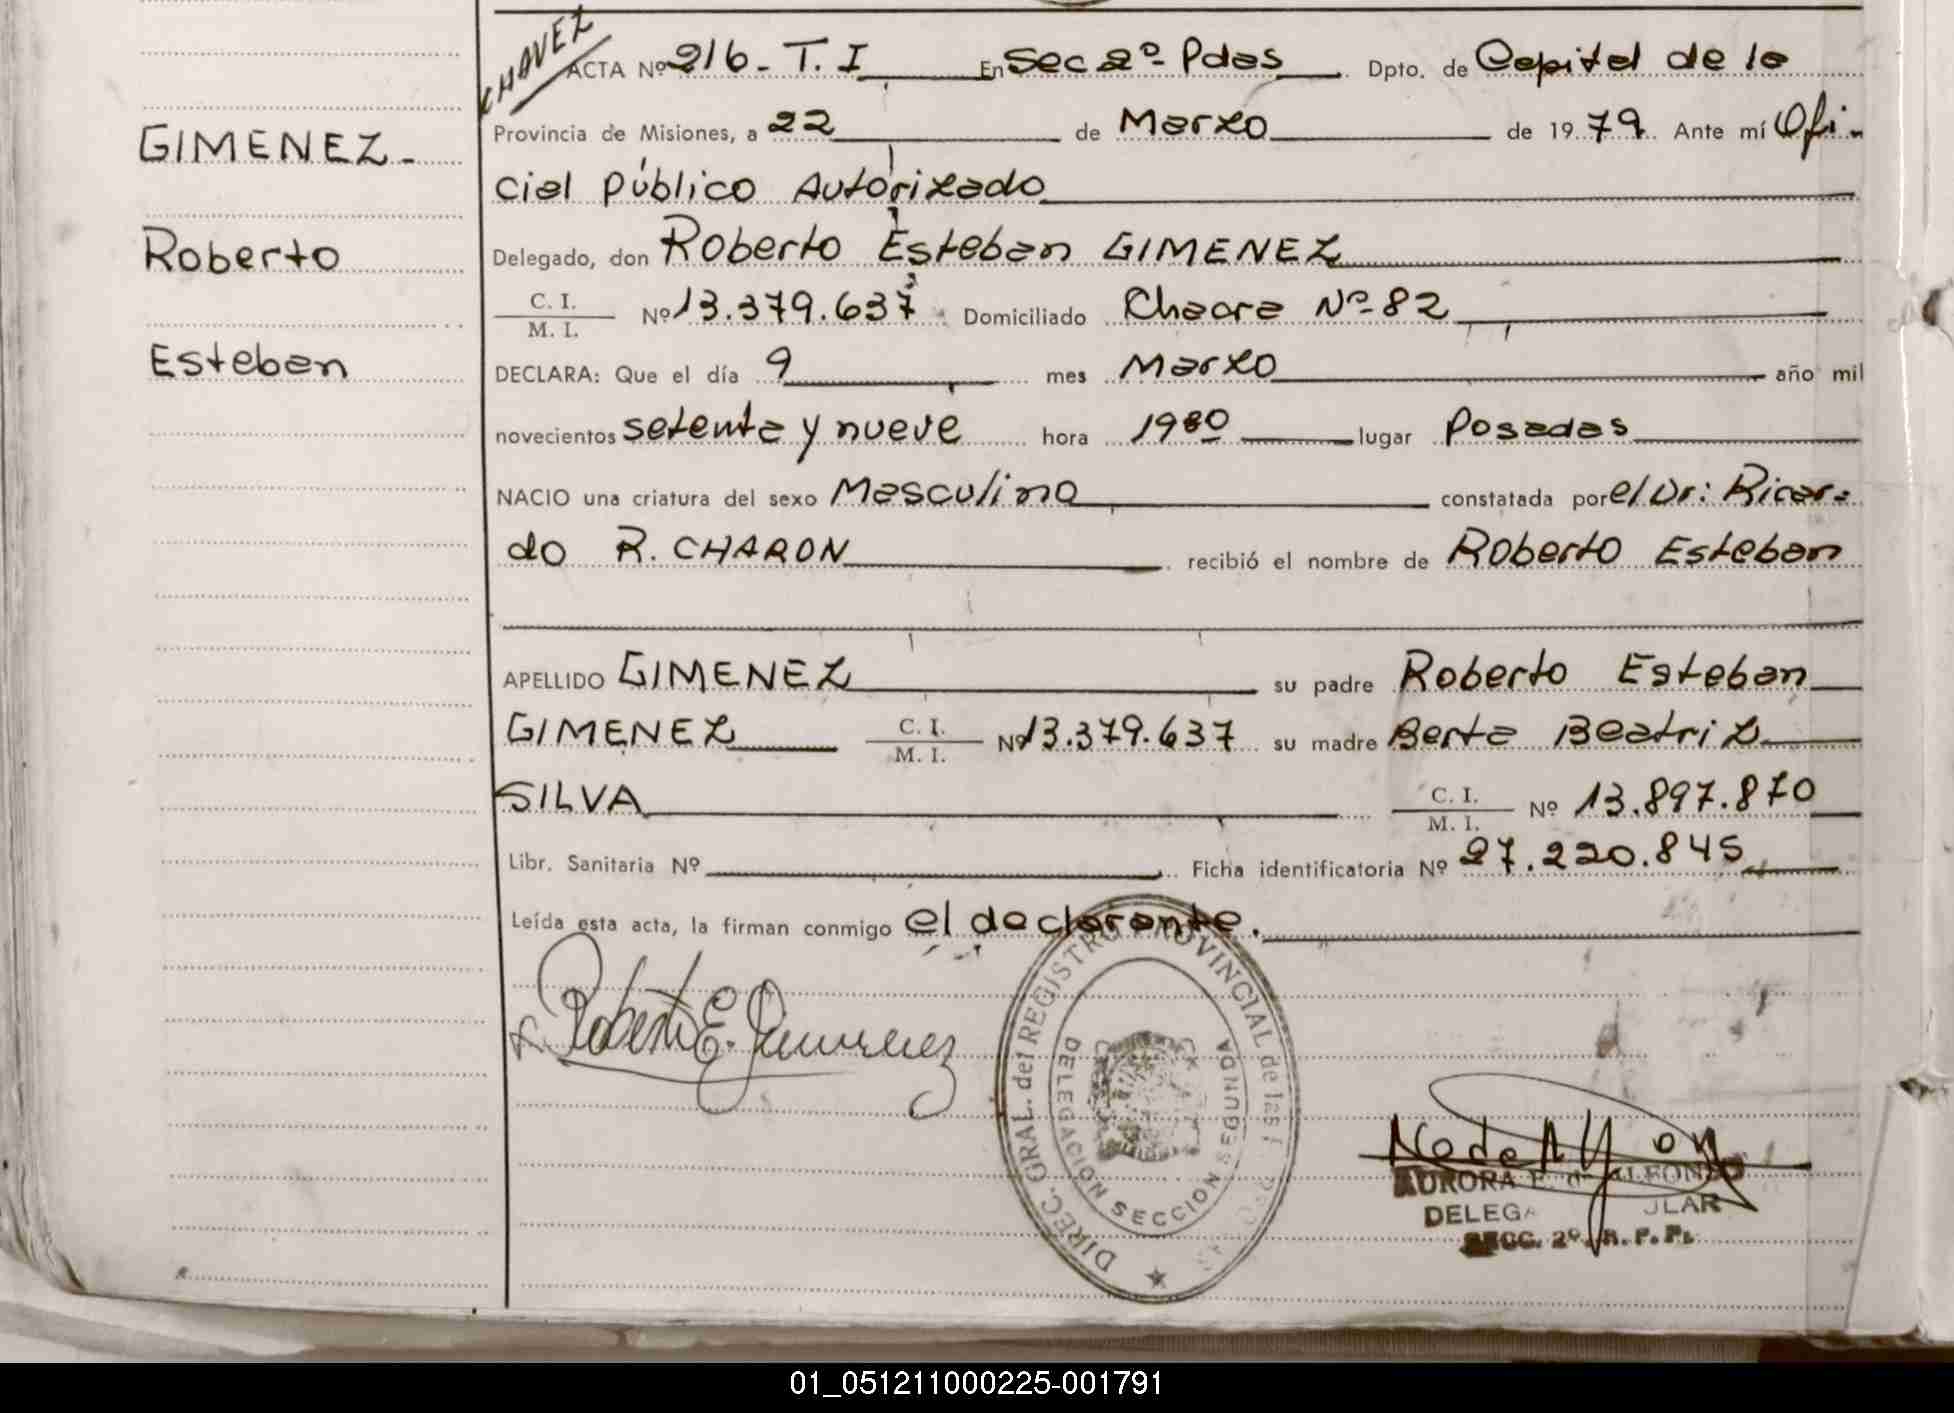 CHAVEZ
ACTA Nº 216 - T. I En Sec 2º- Pdas Dpto. de Capital de la
Provincia de Misiones, a 22 de Marzo de 1979 Ante mí Ofi-
GIMENEZ-
cial Público Autorizado
Roberto
Delegado, don Roberto Esteban GIMENEZ
C. I.
M. I. Nº 13.379.637 Domiciliado Chacra Nº-82
Esteban
DECLARA: Que el día 9 mes Marzo año mil
novecientos setenta y nueve hora lugar Posadas
NACIO una criatura del sexo Masculino constatada por el Dr: Ricar-
do R. CHARON recibió el nombre de Roberto Esteban
APELLIDO GIMENEZ su padre Roberto Esteban
GIMENEZ C. I. M. I. Nº 13.379.637 su madre Berta Beatriz
SILVA C. I. M. I. Nº 13.897.870
Libr. Sanitaria Nº Ficha identificatoria Nº 27.220.845
Leída esta acta, la firman conmigo el declarante.
Roberto E. Gimenez
DIREC. GRAL. del REGISTRO PROVINCIAL de las
DELEGACION SECCION SEGUNDA
AURORA E. de ALFONZO
SECC. 2º R. P. P.
01_051211000225-001791